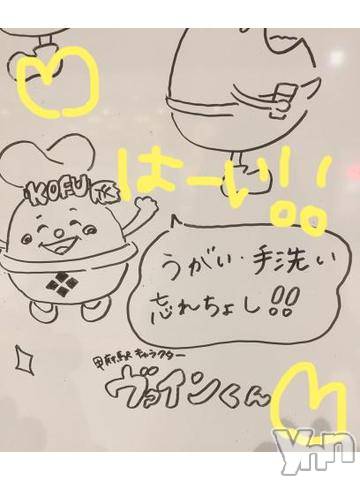 KOFU駅
はーい!!
うがい・手洗い
忘れちょし!!
甲府駅キャラクター
ヴァインくん
ynn